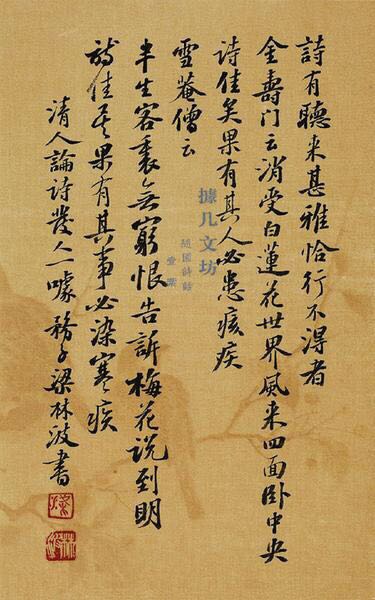 詩有聽來甚雅恰行不得者
金壽门云消受白蓮花世界風来四面卧中央
诗佳矣果有其人必患痎疾
雪菴僧云
半生客裏無窮恨告訴梅花说到明
詩佳矣果有其事必染寒疾
清人論詩發人一噱務子梁林波書
據几文坊
随園詩話